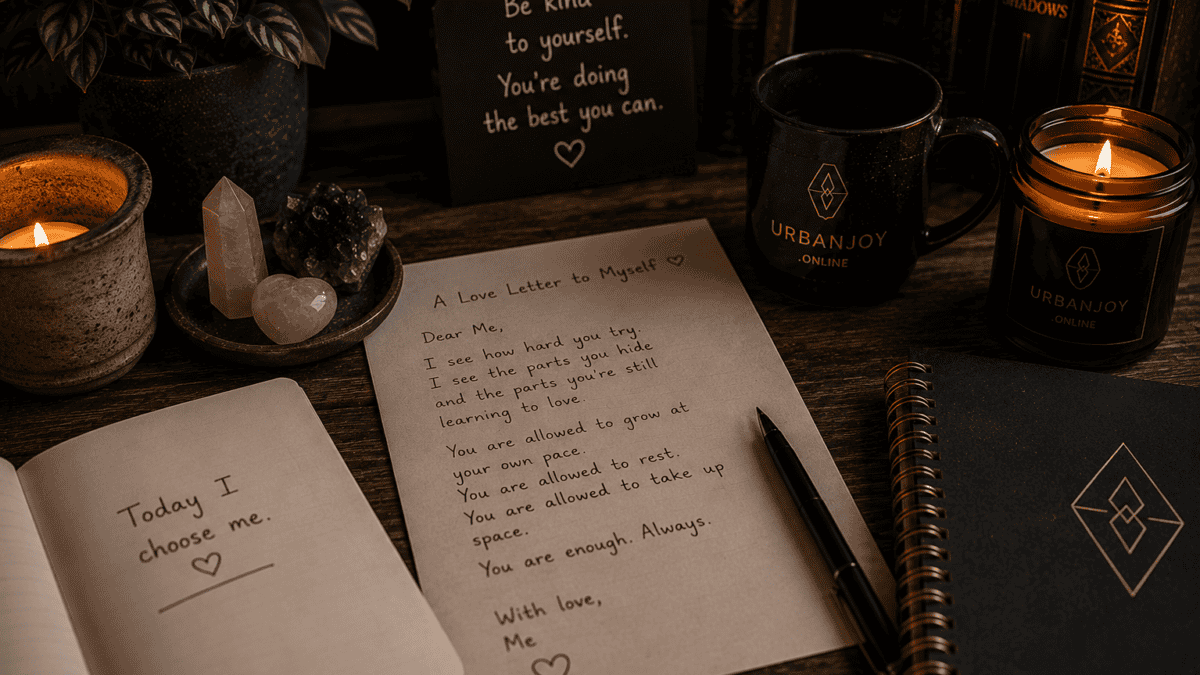 Be kind
to yourself.
You're doing
the best you can.
SHADOWS
URBANJOY
.ONLINE
URBANJOY
.ONLINE
A Love Letter to Myself
Dear Me,
I see how hard you try.
I see the parts you hide
and the parts you're still
learning to love.
You are allowed to grow at
your own pace.
You are allowed to rest.
You are allowed to take up
space.
You are enough. Always.
With love,
Me
Today I
choose me.